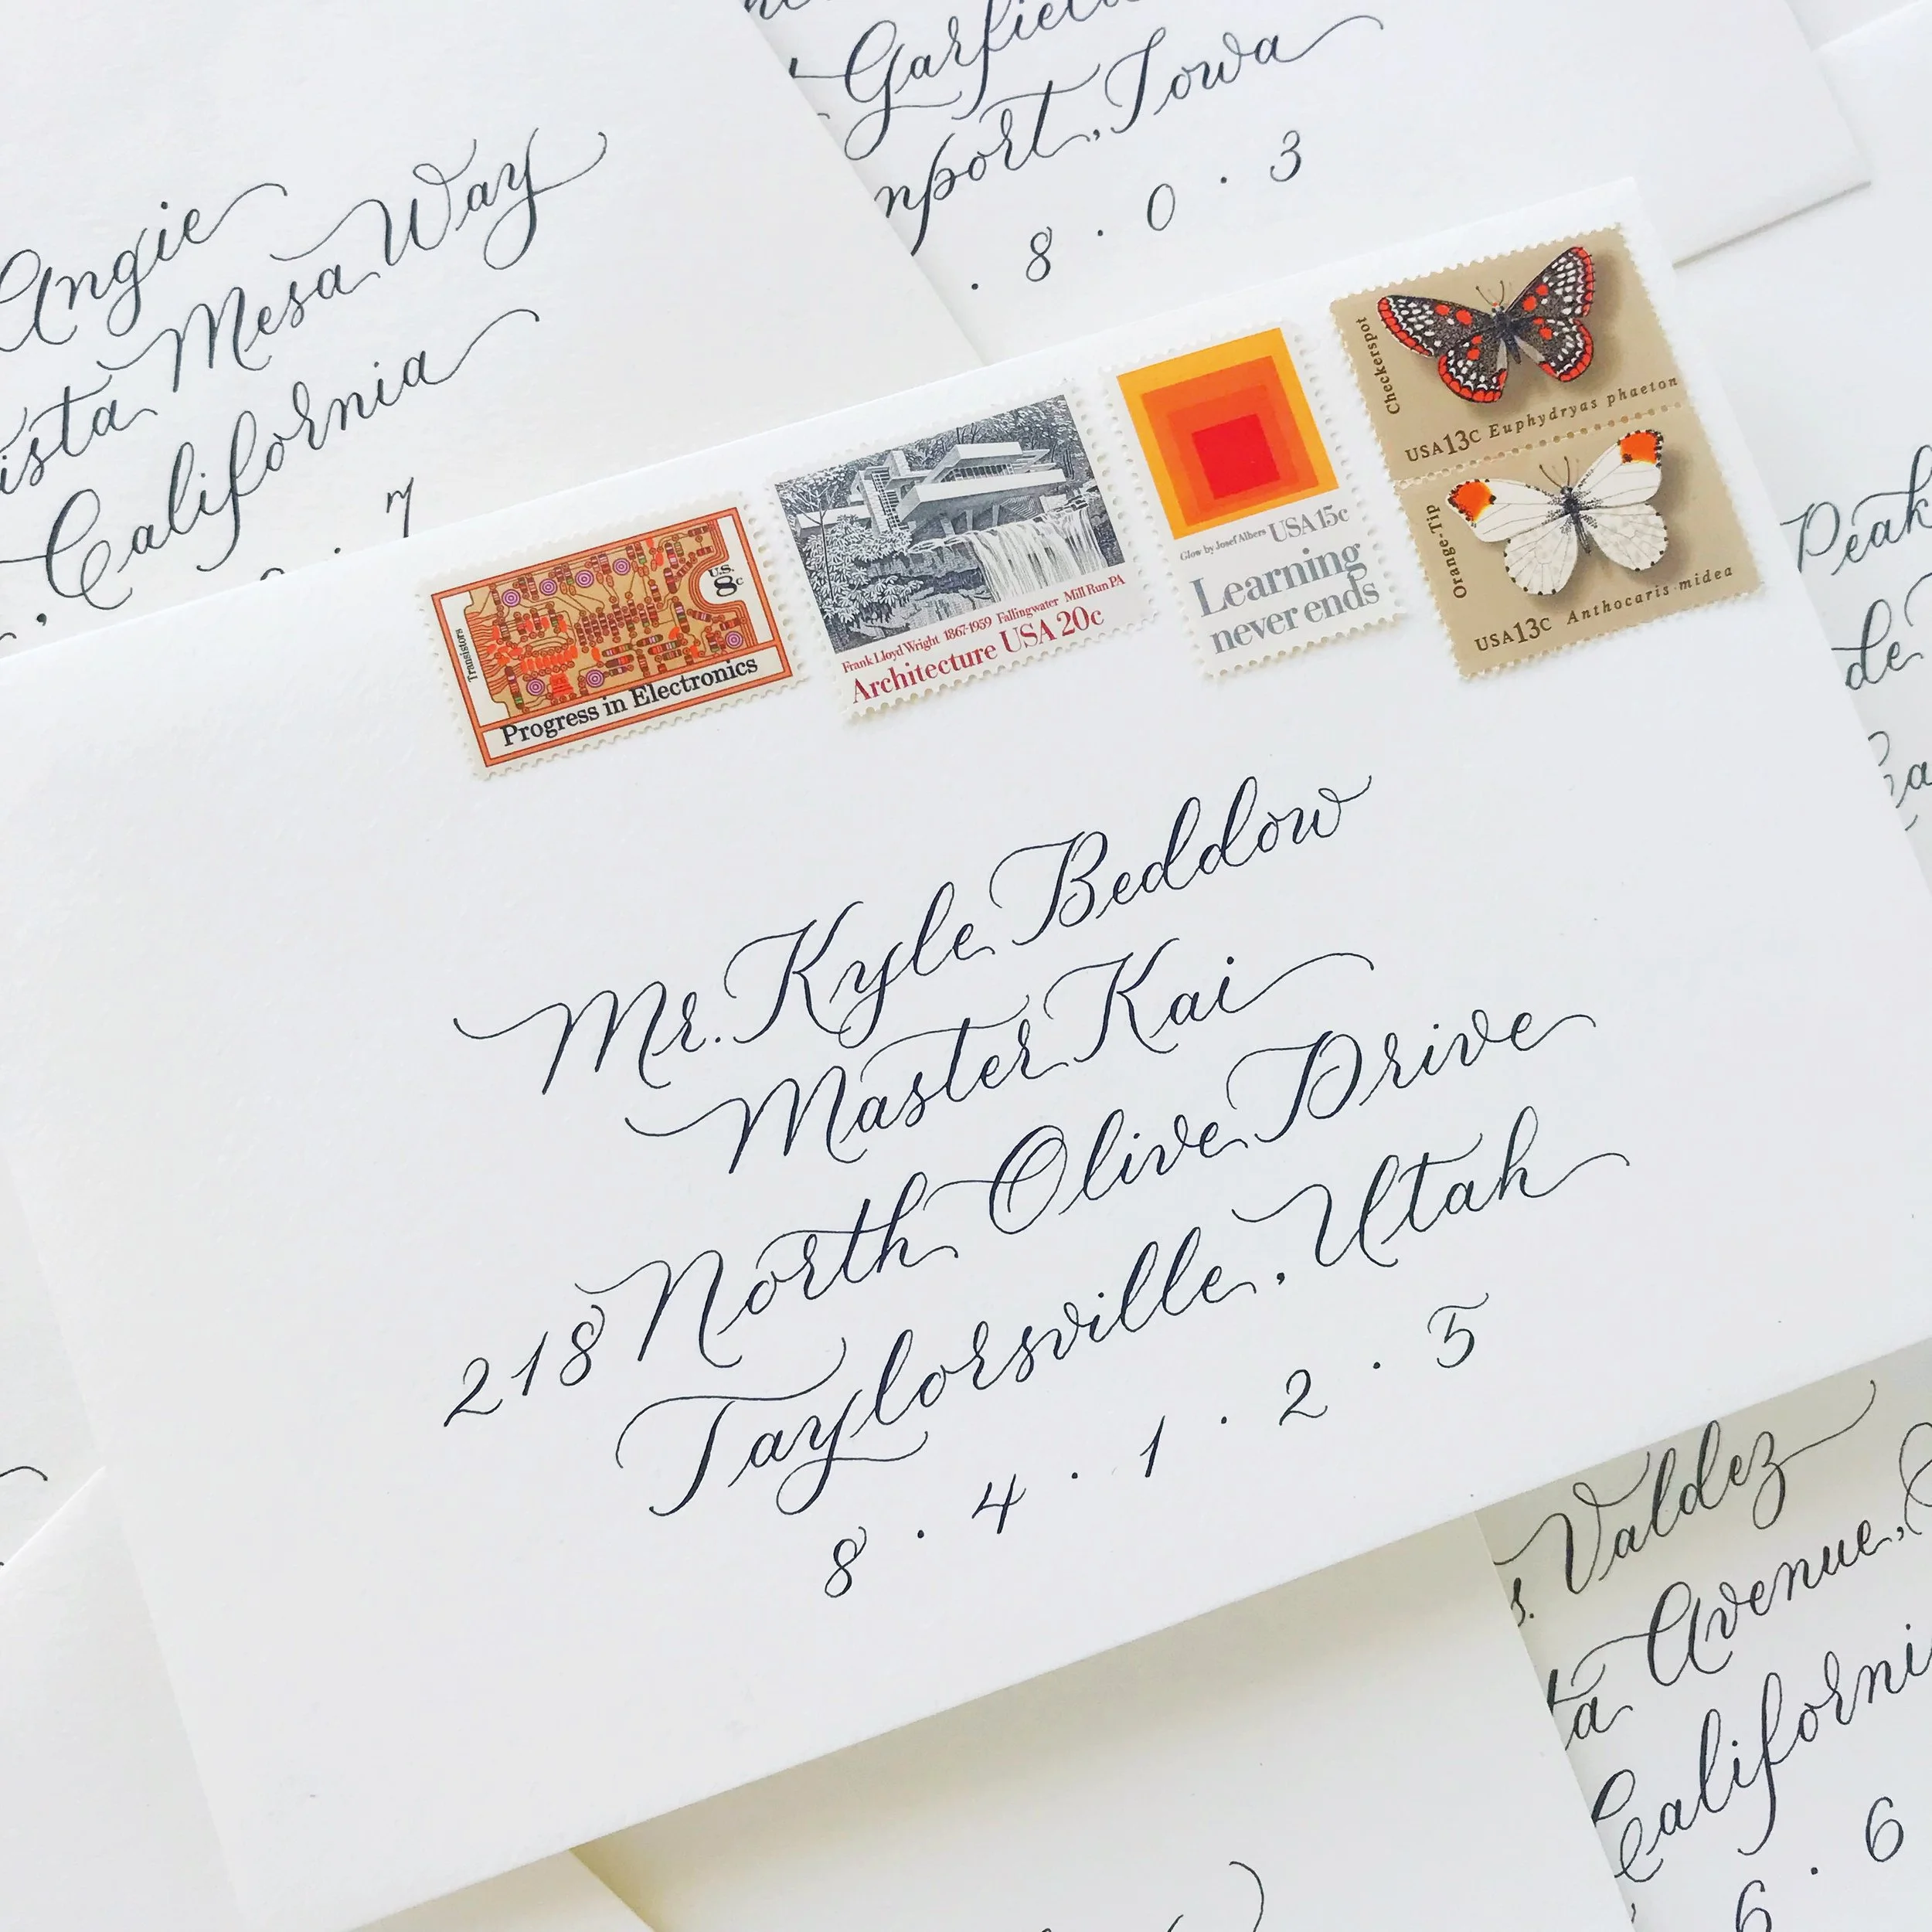 Angie
Mesa Way
California
7
Iowa
8 · 0 · 3
Transistors
U.S. 8c
Progress in Electronics
Frank Lloyd Wright 1867-1959 Fallingwater Mill Run PA
Architecture USA 20c
Glow by Josef Albers USA 15c
Learning
never ends
Checkerspot
USA 13c Euphydryas phaeton
Orange-Tip
USA 13c Anthocaris midea
Mr. Kyle Beddow
Master Kai
218 North Olive Drive
Taylorsville, Utah
8 · 4 · 1 · 2 · 5
Peak
de
Valdez
Avenue,
6 · 6